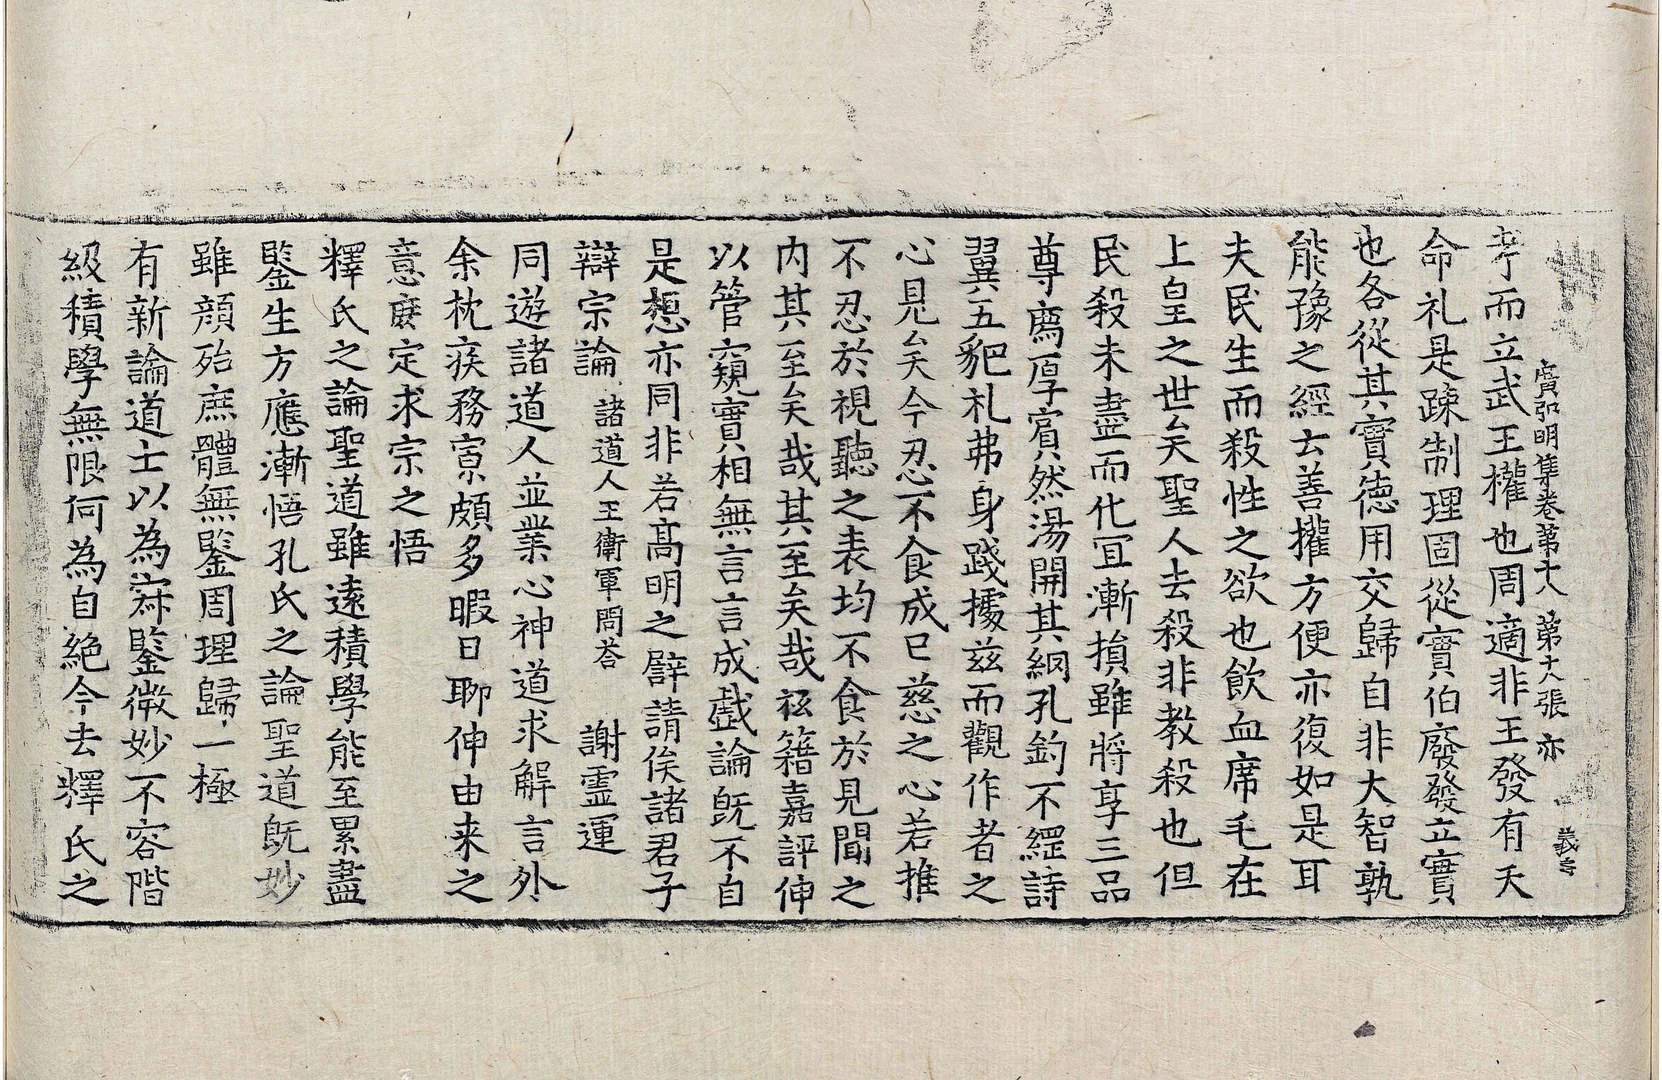 廣弘明集卷第十八　第十八張　亦
義寺
考而立武王權也周適非王發有天
命礼是踈制理固從實伯廢發立實
也各從其實德用交歸自非大智孰
能豫之經云善權方便亦復如是耳
夫民生而殺性之欲也飲血席毛在
上皇之世矣聖人去殺非教殺也但
民殺未盡而化冝漸損雖將享三品
尊廌厚賓然湯開其網孔釣不經詩
翼五豝礼弗身踐據兹而觀作者之
心見矣今忍不食成已慈之心若推
不忍於視聽之表均不食於見聞之
内其至矣哉其至矣哉衹籍嘉評伸
以管窺實相無言言成戲論旣不自
是想亦同非若髙明之譬請俟諸君子
辯宗論　諸道人王衛軍問荅　謝靈運
同遊諸道人並業心神道求解言外
余枕疾務寡頗多暇日聊伸由来之
意庶定求宗之悟
釋氏之論聖道雖遠積學能至累盡
鑒生方應漸悟孔氏之論聖道旣妙
雖顔殆庶體無鑒周理歸一極
有新論道士以為寂鑒微妙不容階
級積學無限何為自絶今去釋氏之